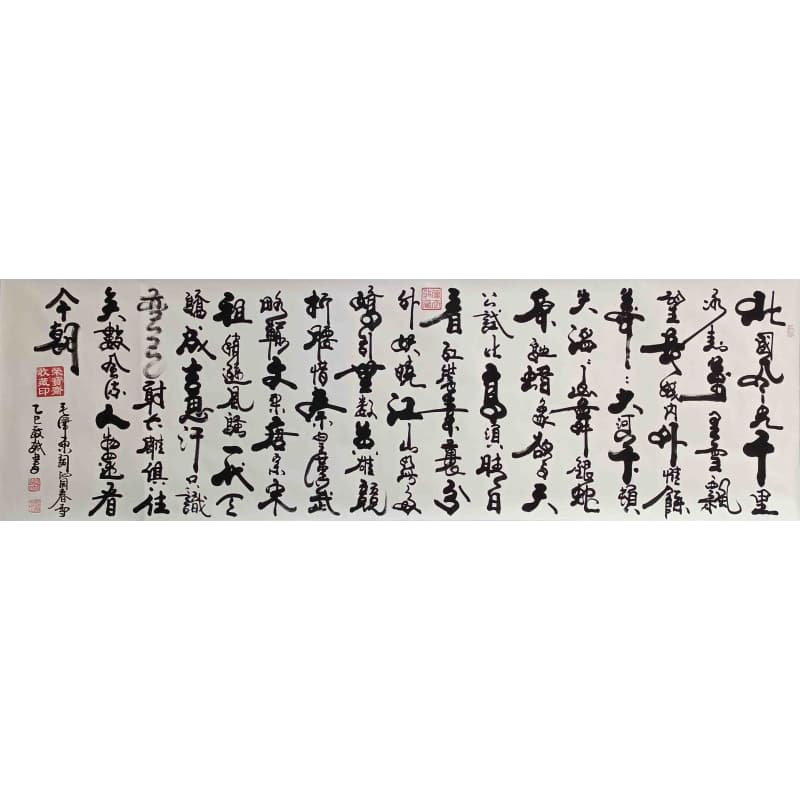 北國風光千里
冰封萬里雪飄
望長城內外惟餘
莽〻大河下頓
失滔〻山舞銀蛇
原馳蜡象欲與天
公試比高須晴日
看紅裝素裹分
外妖嬈江山如此多
嬌引無數英雄競
折腰惜秦皇漢武
略輸文采唐宗宋
祖稍遜風騷一代天
驕成吉思汗只識
彎弓射大雕俱往
矣數風流人物還看
今朝
毛澤東詞沁園春雪
乙巳書
榮寶齋
收藏印